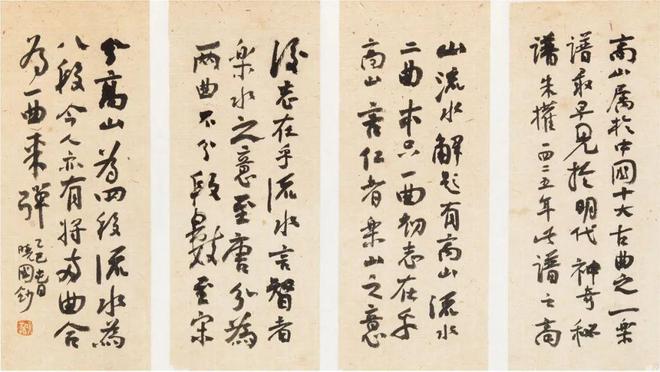 高山属於中國十大古曲之一樂
譜最早見於明代神奇秘
譜朱權一四二五年此譜之高
山流水解題有高山流水
二曲本只一曲初志在乎
高山言仁者樂山之意
後志在乎流水言智者
樂水之意至唐分為
兩曲不分段數至宋
分高山為四段流水為
八段今人亦有將两曲合
為一曲来彈
乙巳
曉國鈔